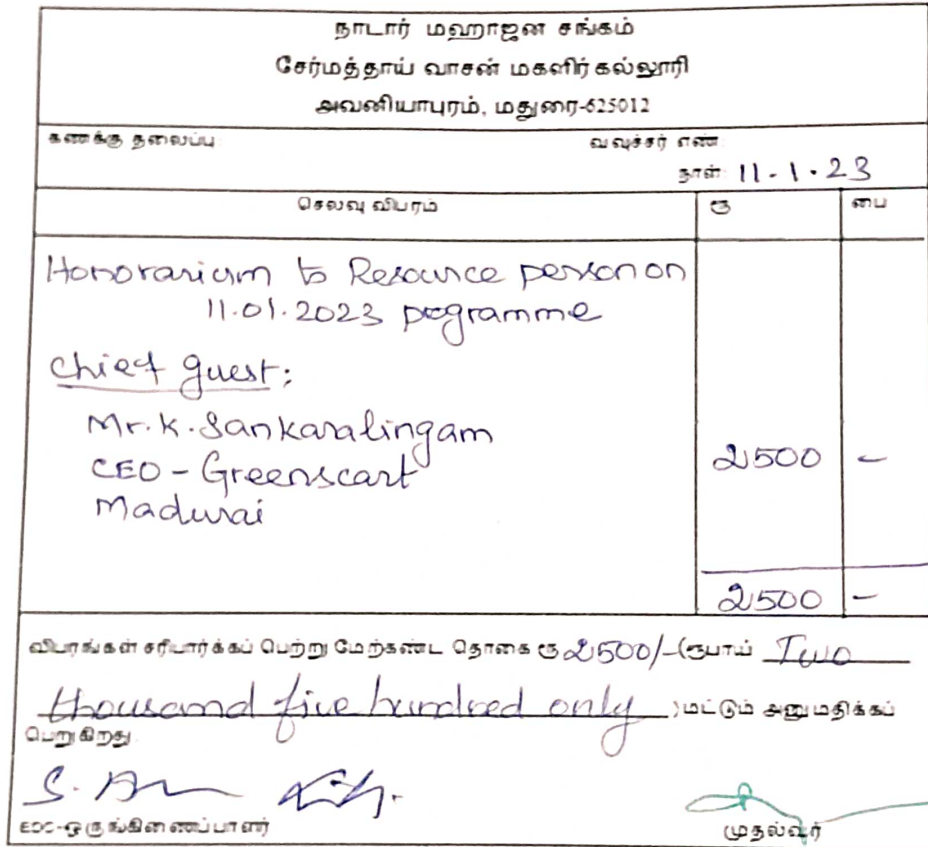 நாடார் மஹாஜன சங்கம்
சேர்மத்தாய் வாசன் மகளிர் கல்லூரி
அவனியாபுரம், மதுரை-625012
கணக்கு தலைப்பு வவுச்சர் எண்:
நாள்: 11-1-23
செலவு விபரம் ரூ பை
Honorarium to Resource person on
11.01.2023 programme
Chief guest:
Mr. K. Sankaralingam
CEO - Greenscart 2500 -
Madurai
2500 -
விபரங்கள் சரிபார்க்கப் பெற்று மேற்கண்ட தொகை ரூ 2500/- (ரூபாய் Two
thousand five hundred only ) மட்டும் அனுமதிக்கப்
பெறுகிறது.
EDC-ஒருங்கிணைப்பாளர் முதல்வர்